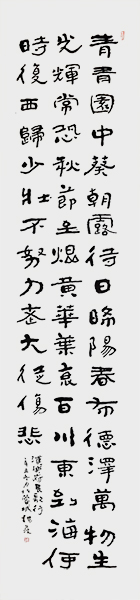 青青園中葵朝露待日晞陽春布德澤萬物生
光輝常恐秋節至焜黃華葉衰百川東到海何
時復西歸少壯不努力老大徒傷悲
漢樂府長歌行